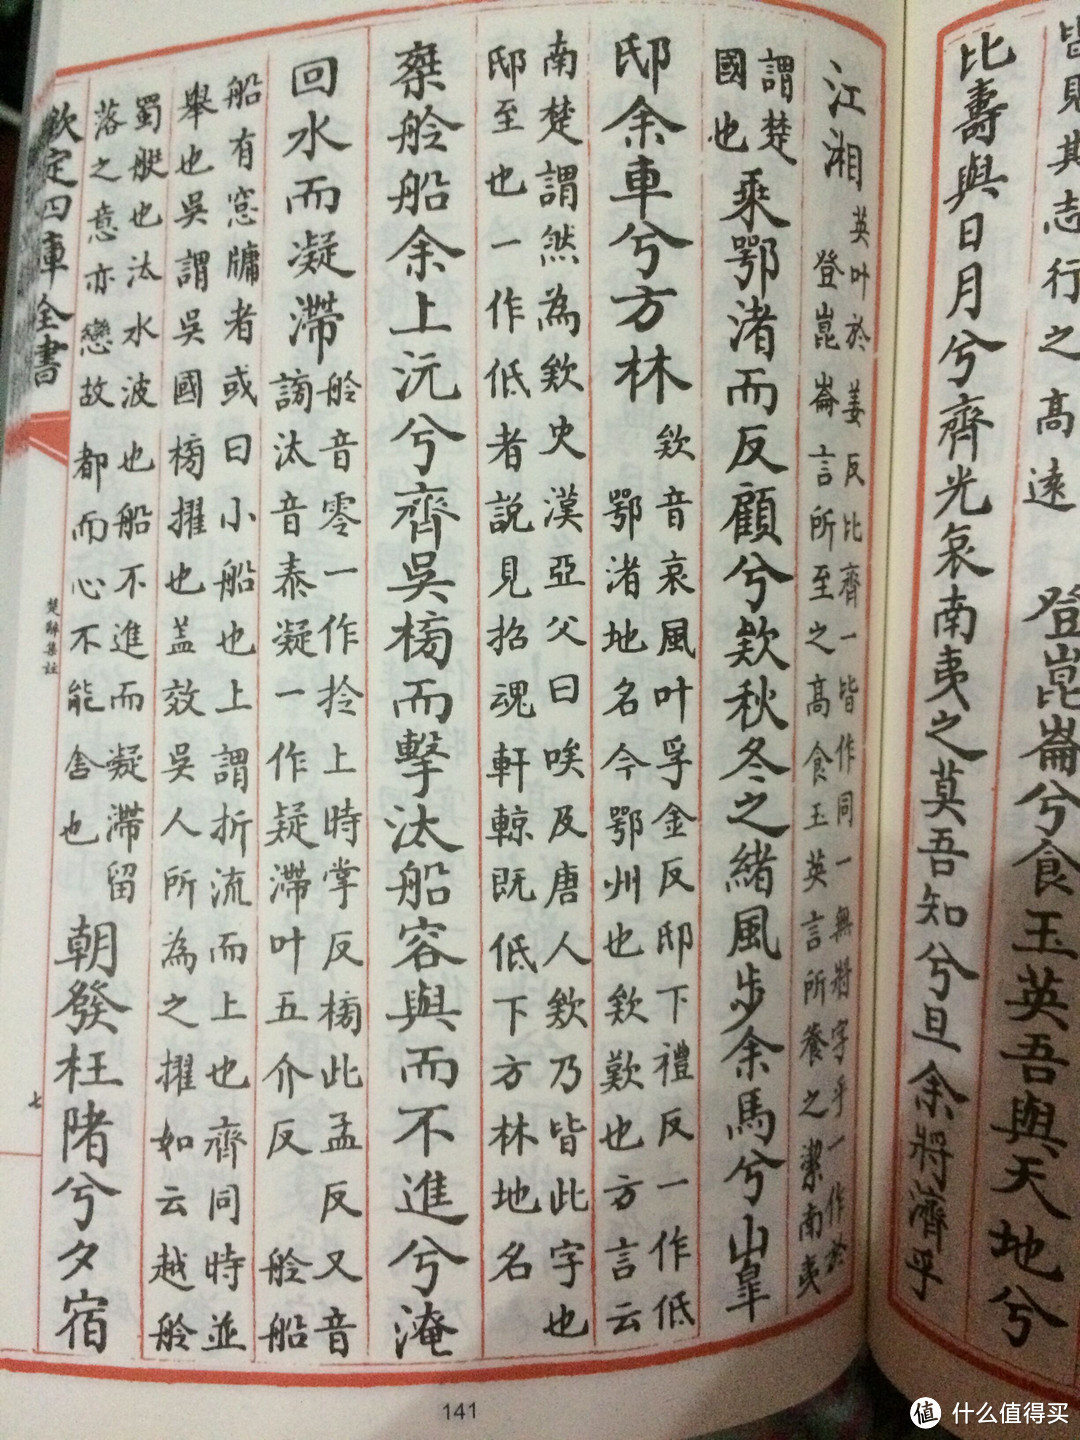 皆見其志行之高遠
登崑崙兮食玉英吾與天地兮
比壽與日月兮齊光哀南夷之莫吾知兮旦余將濟乎
江湘
英叶於姜反比齊一皆作同一無將字乎一作於
登崑崙言所至之高食玉英言所養之潔南夷
謂楚
國也
乘鄂渚而反顧兮欵秋冬之緒風步余馬兮山臯
邸余車兮方林
欵音哀風叶孚金反邸下禮反一作低
鄂渚地名今鄂州也欵歎也方言云
南楚謂然為欵史漢亞父曰唉及唐人欵乃皆此字也
邸至也一作低者説見招魂軒輬既低下方林地名
椉舲船余上沅兮齊吳榜而擊汰船容與而不進兮淹
回水而凝滯
舲音零一作拎上時掌反榜此孟反又音
謗汰音泰凝一作疑滯叶五介反 舲船
船有窓牖者或曰小船也上謂折流而上也齊同時並
舉也吳謂吳國榜擢也盖效吳人所為之擢如云越舲
蜀艇也汰水波也船不進而凝滯留
落之意亦戀故都而心不能舍也
朝發枉陼兮夕宿
欽定四庫全書
楚辭集註
七
141
值 什么值得买